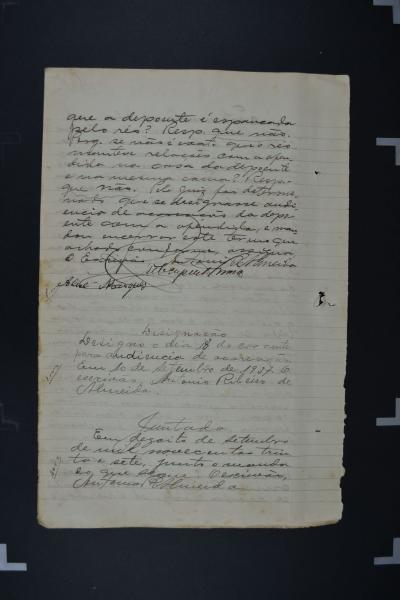 que a depoente é espancada
pelo réo? Resp. que não.
Perg. se não é exato que o réo
manteve relações com a ofen-
dida na casa da depoente
e na mesma cama? Respon-
que não. Pelo Juiz foi determi-
nado que se designasse audi-
encia de acareação da depo-
ente com a ofendida, e man-
dou encerrar este termo que
achado conforme, assina
O Escrivão, Antonio R. Almeida
Alve Marques
Designação
Designo o dia 18 do corrente
para audiencia de acareação
Em, 10 de setembro de 1937. O
escrivão, Antonio Ribeiro de
Almeida.
Juntada
Em dezoito de setembro
de mil novecentos trin-
ta e sete, junto o manda-
do que segue. O escrivão,
Antonio R. Almeida